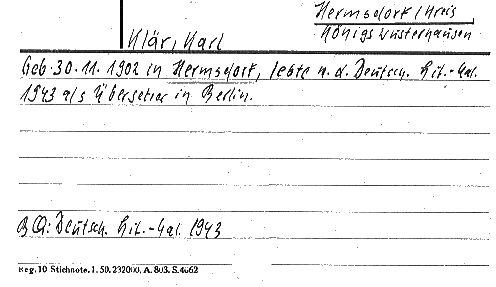 Hermsdorf/Kreis
Königswusterhausen
Klär, Karl
Geb. 30. 11. 1902 in Hermsdorf, lebte n. d. Deutsch. Lit.-Kal.
1943 als Übersetzer in Berlin.
BQ: Deutsch. Lit.-Kal. 1943
Reg. 10 Stichnote. 1. 50. 232000. A. 803. S. 4662